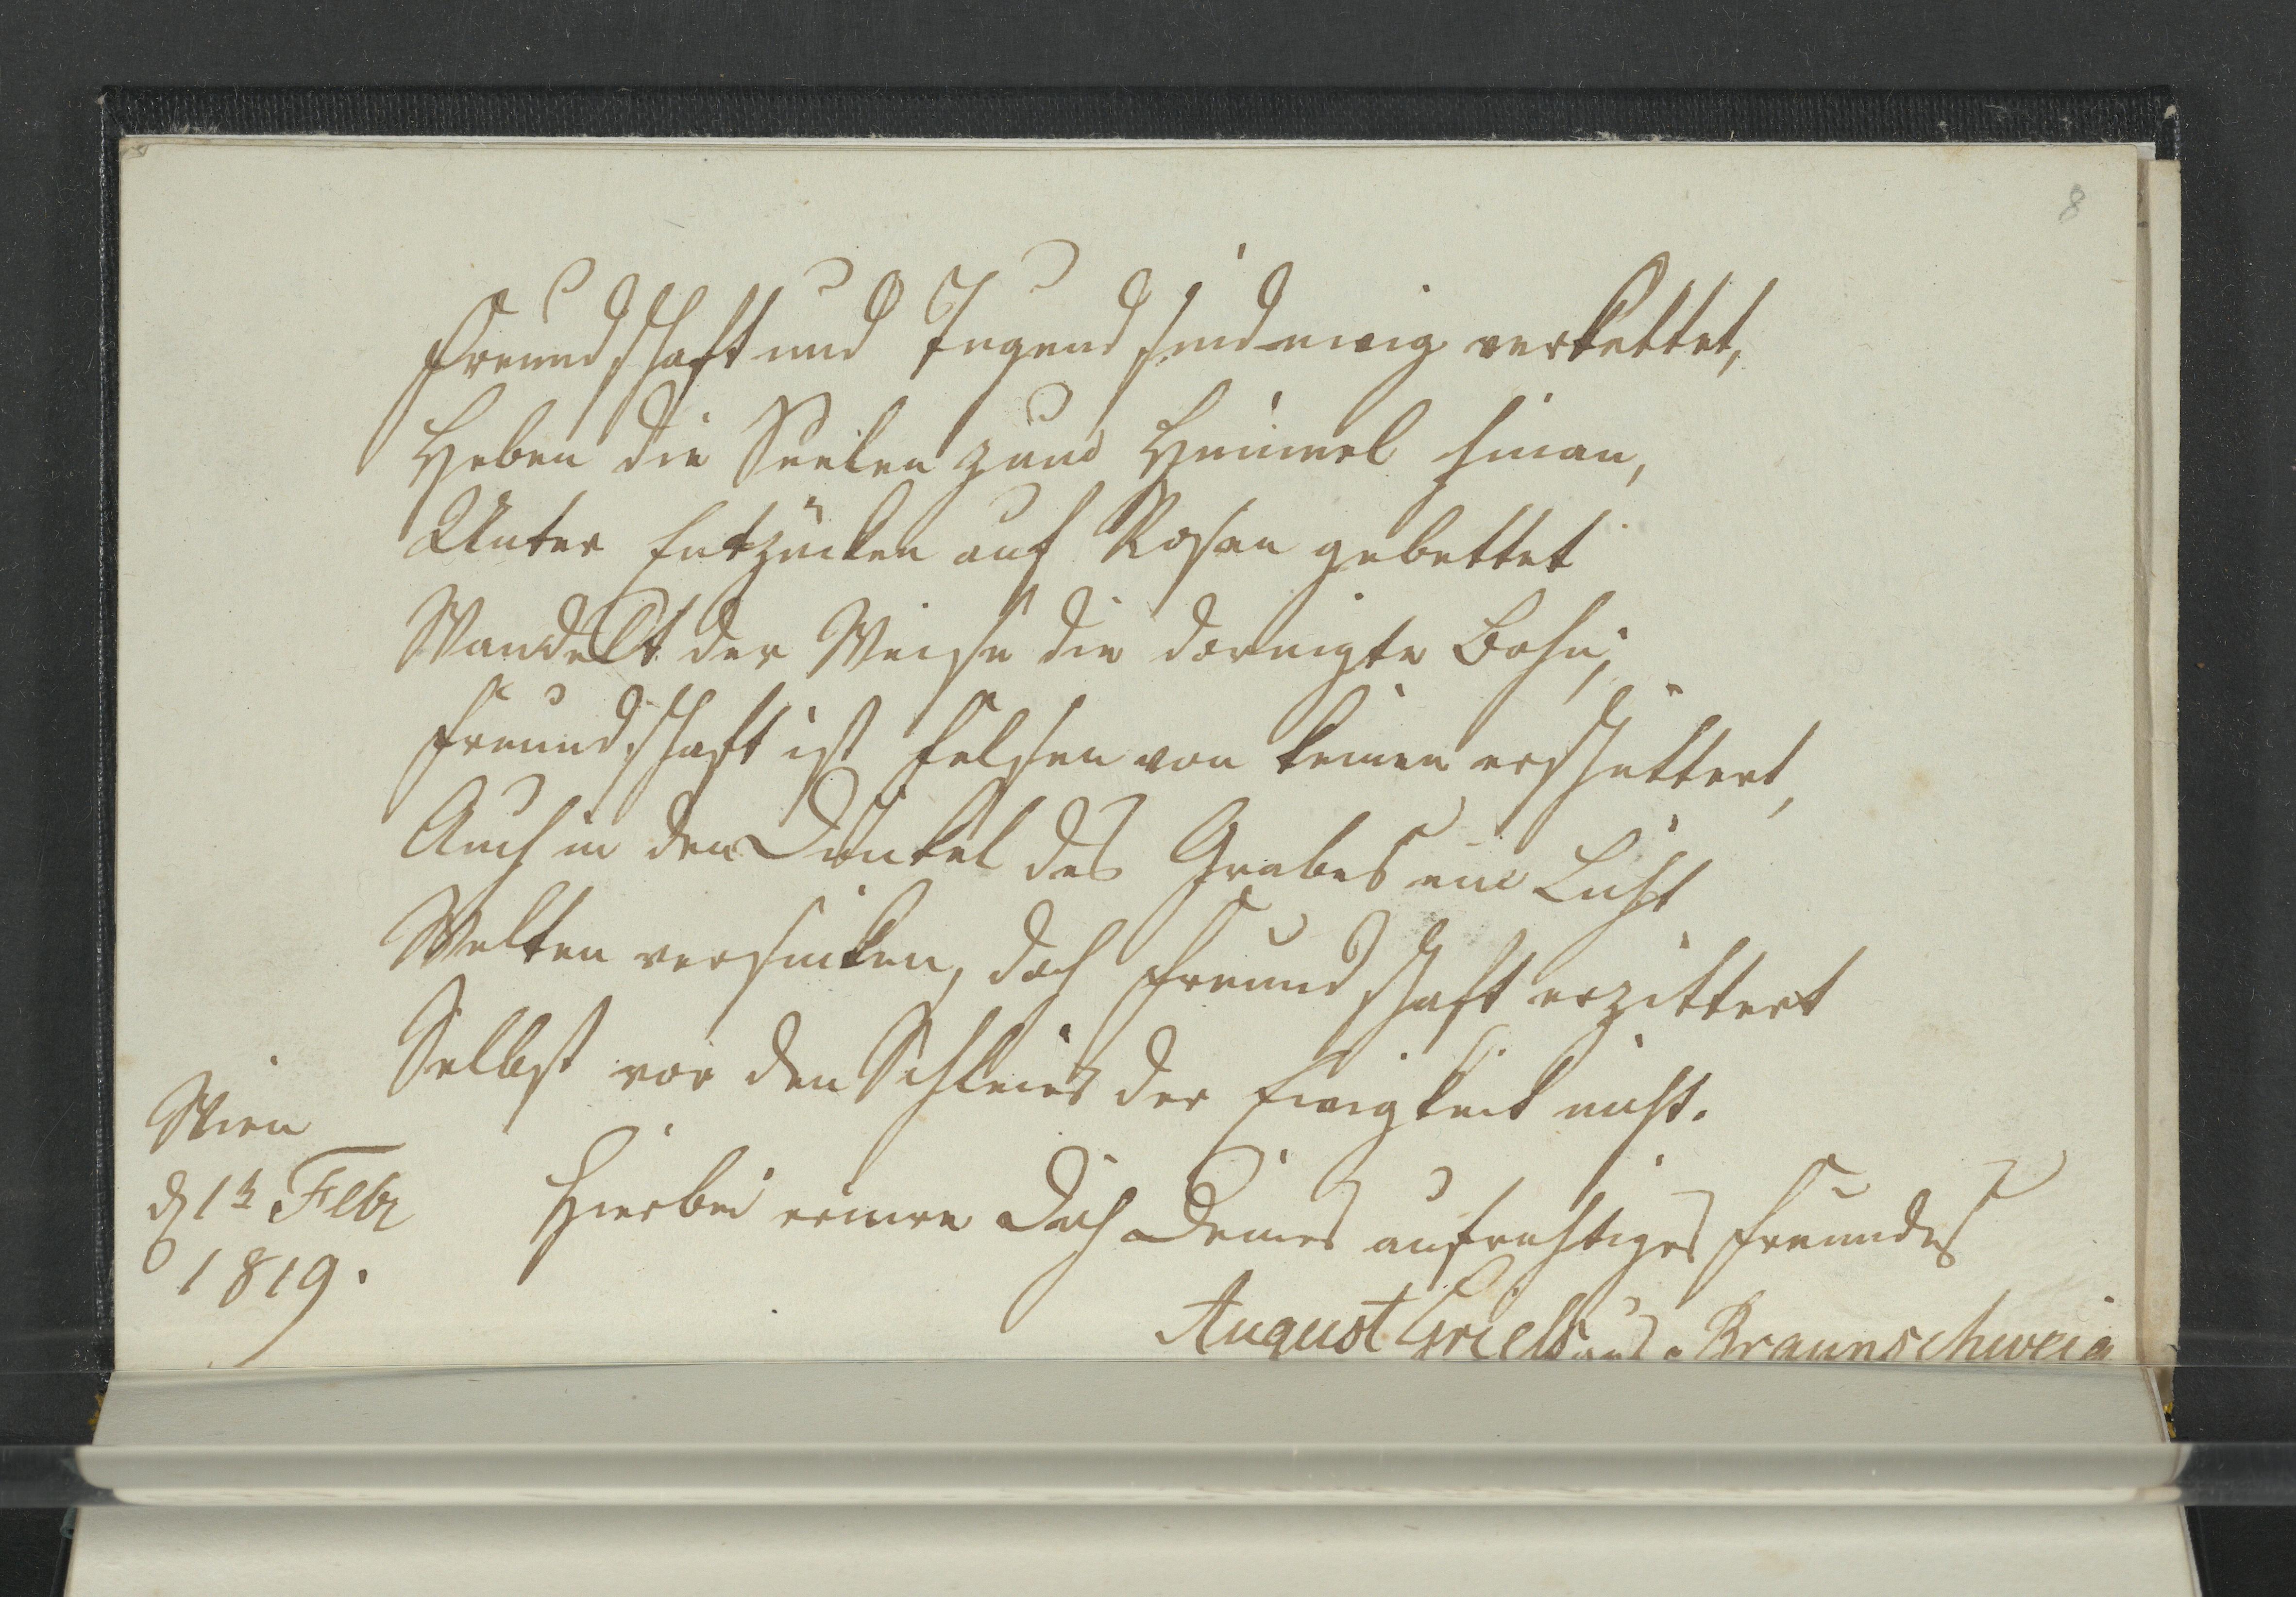 8
Freundschaft und Tugend sind ewig verkettet,
Heben die Seelen zum Himmel hinan,
Unter Entzücken auf Rosen gebettet
Wandelt der Weise die dornigte Bahn;
Freundschaft ist Felsen von keinen erschüttert,
Auch in den Dunkel des Grabes ein Licht
Welten versinken, doch Freundschaft erzittert
Selbst vor den Schleier der Ewigkeit nicht.
Wien
d 1t Febr
1819.
Hierbei erinre Dich Deines aufrichtiges Freundes
August aus Braunschweig